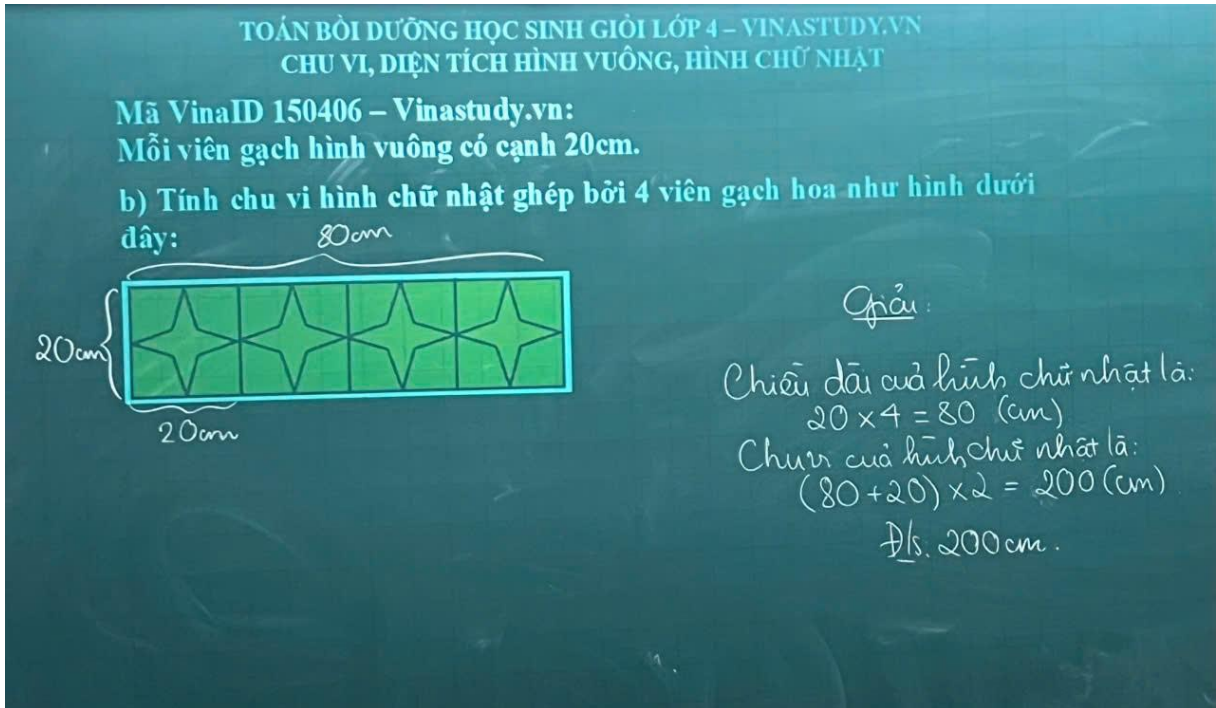 TOÁN BỒI DƯỠNG HỌC SINH GIỎI LỚP 4 – VINASTUDY.VN
CHU VI, DIỆN TÍCH HÌNH VUÔNG, HÌNH CHỮ NHẬT
Mã VinaID 150406 – Vinastudy.vn:
Mỗi viên gạch hình vuông có cạnh 20cm.
b) Tính chu vi hình chữ nhật ghép bởi 4 viên gạch hoa như hình dưới
đây:
80cm
20cm
20cm
Giải:
Chiều dài của hình chữ nhật là:
20 × 4 = 80 (cm)
Chu vi của hình chữ nhật là:
(80 + 20) × 2 = 200 (cm)
Đ/s. 200 cm.